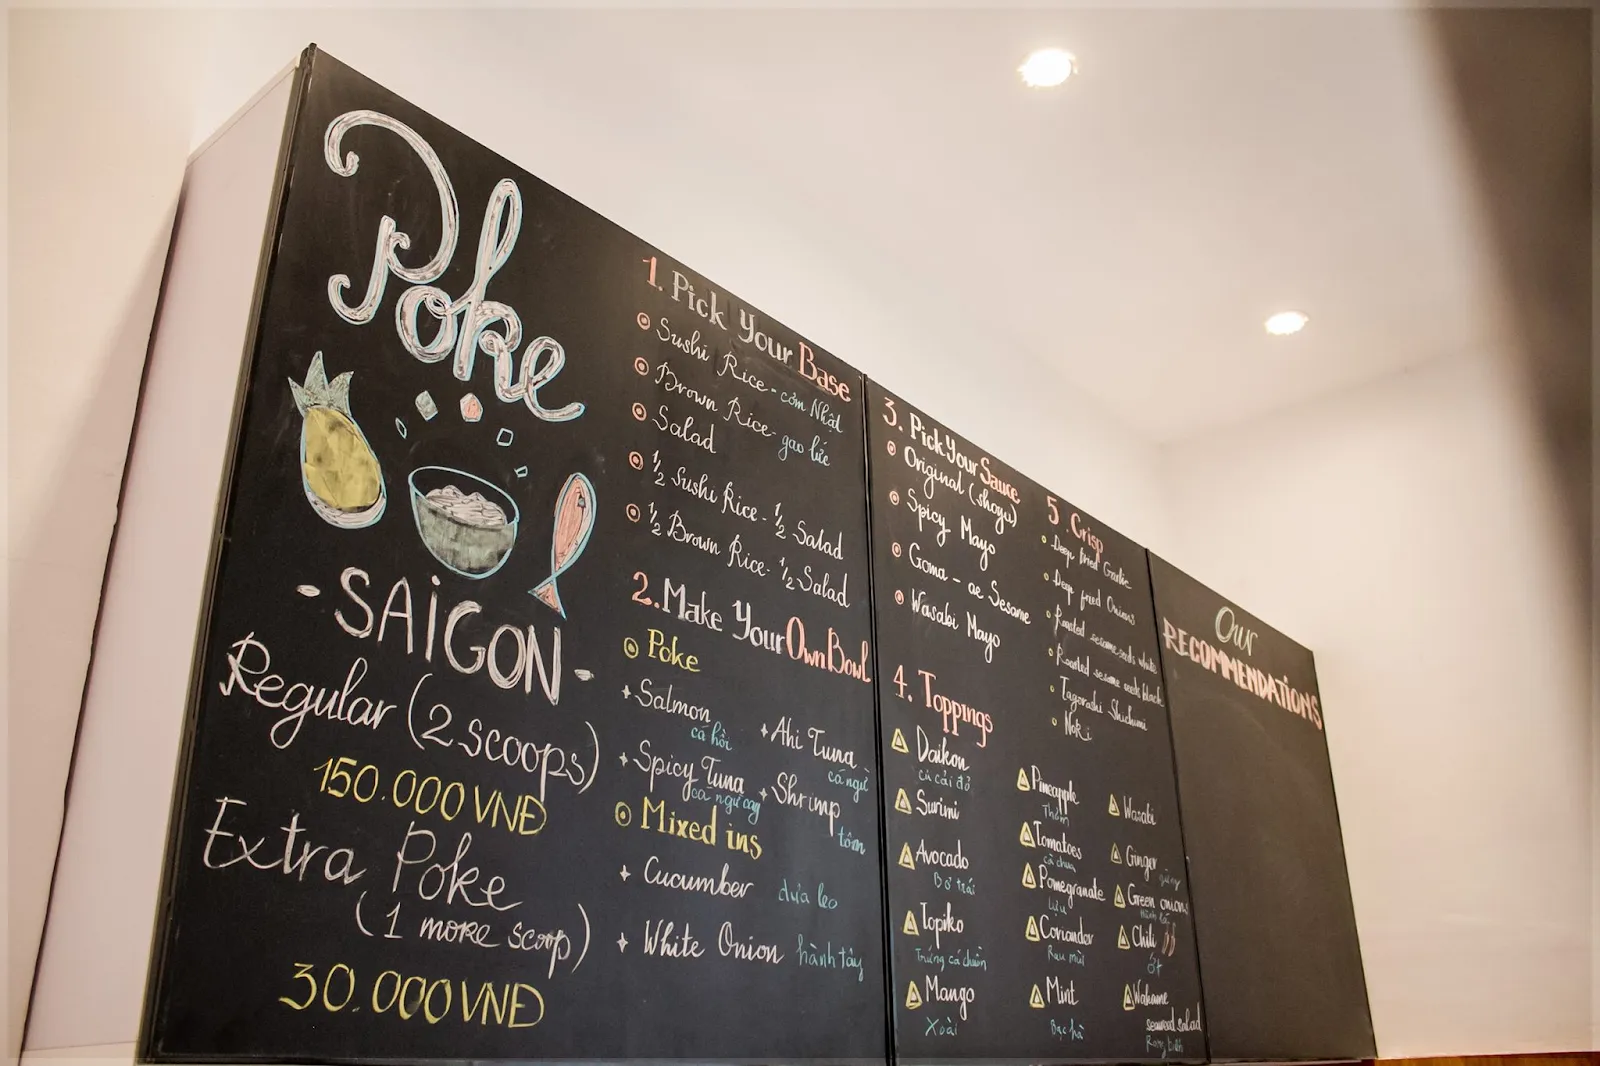 Poke
- SAiGON -
Regular (2 scoops)
150.000 VNĐ
Extra Poke
(1 more scoop)
30.000 VNĐ
1. Pick Your Base
Sushi Rice - cơm Nhật
Brown Rice - gạo lức
Salad
1/2 Sushi Rice - 1/2 Salad
1/2 Brown Rice - 1/2 Salad
2. Make Your Own Bowl
Poke
Salmon
cá hồi
Ahi Tuna
cá ngừ
Spicy Tuna
cá ngừ cay
Shrimp
tôm
Mixed ins
Cucumber dưa leo
White Onion hành tây
3. Pick Your Sauce
Original (shoyu)
Spicy Mayo
Goma - ae Sesame
Wasabi Mayo
4. Toppings
Daikon
củ cải đỏ
Surimi
Avocado
Bơ trái
Topiko
Trứng cá chuồn
Mango
Xoài
Pineapple
Thơm
Tomatoes
cà chua
Pomegranate
Lựu
Coriander
Rau mùi
Mint
Bạc hà
Wasabi
Ginger gừng
Green onions
Hành lá
Chili
Ớt
Wakame
seaweed salad
Rong biển
5. Crisp
Deep fried Garlic
Deep fried Onions
Roasted sesame seeds white
Roasted sesame seeds black
Togarashi Shichimi
Nori
Our
RECOMMENDATiONS